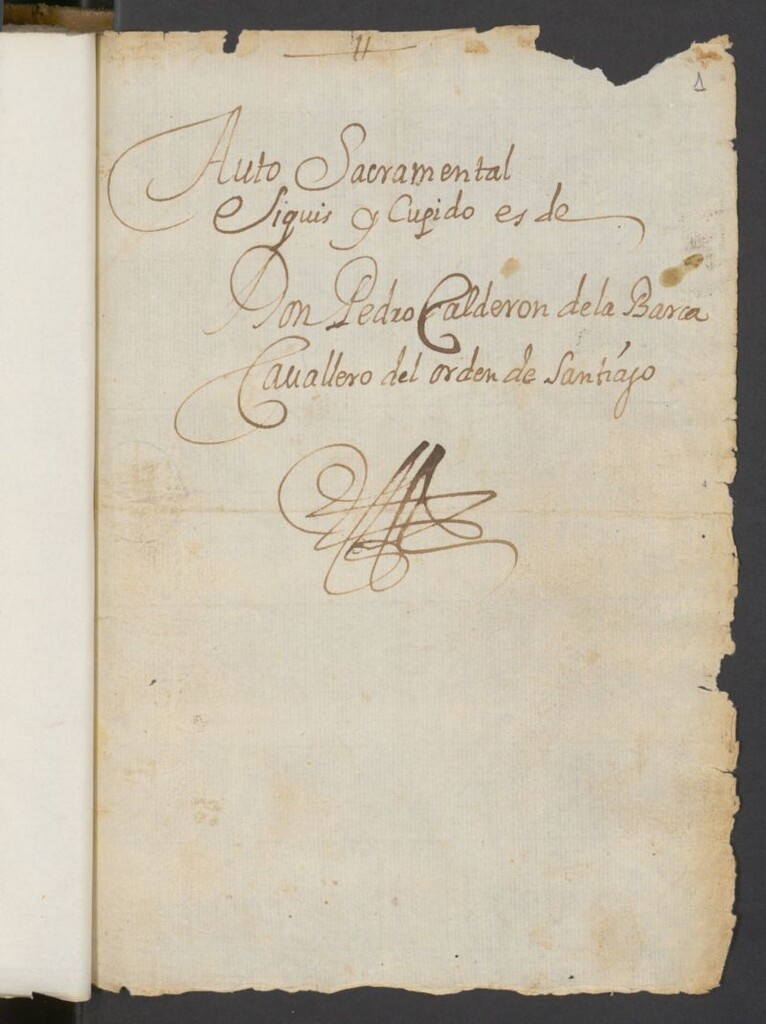 11
1
Auto Sacramental
Siquis y Cupido es de
Don Pedro Calderon dela Barca
Cauallero del orden de Santiago